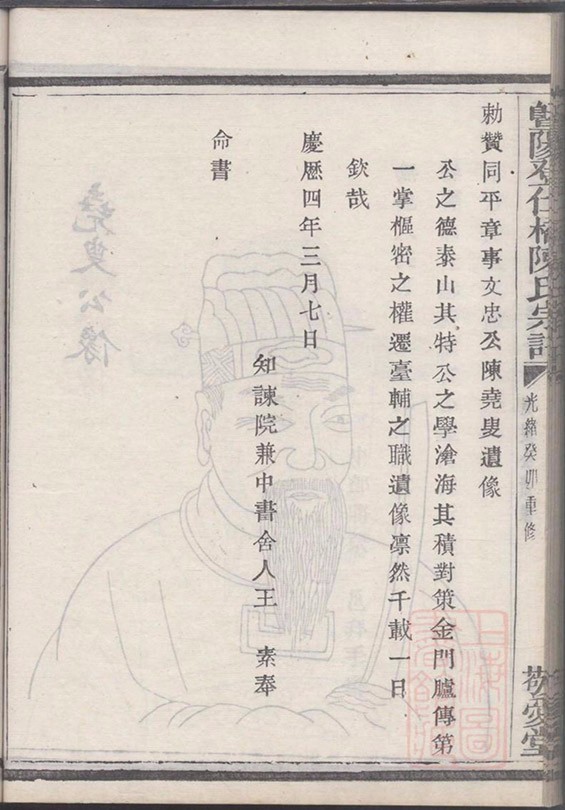 暨陽登仕橋陳氏宗譜
光緒癸卯重修
敬愛堂
勅贊同平章事文忠公陳堯叟遺像
公之德泰山其特公之學滄海其積對策金門臚傳第
一掌樞密之權遷臺輔之職遺像凛然千載一日
欽哉
慶厯四年三月七日
知諫院兼中書舍人王 素奉
命書
堯叟公像